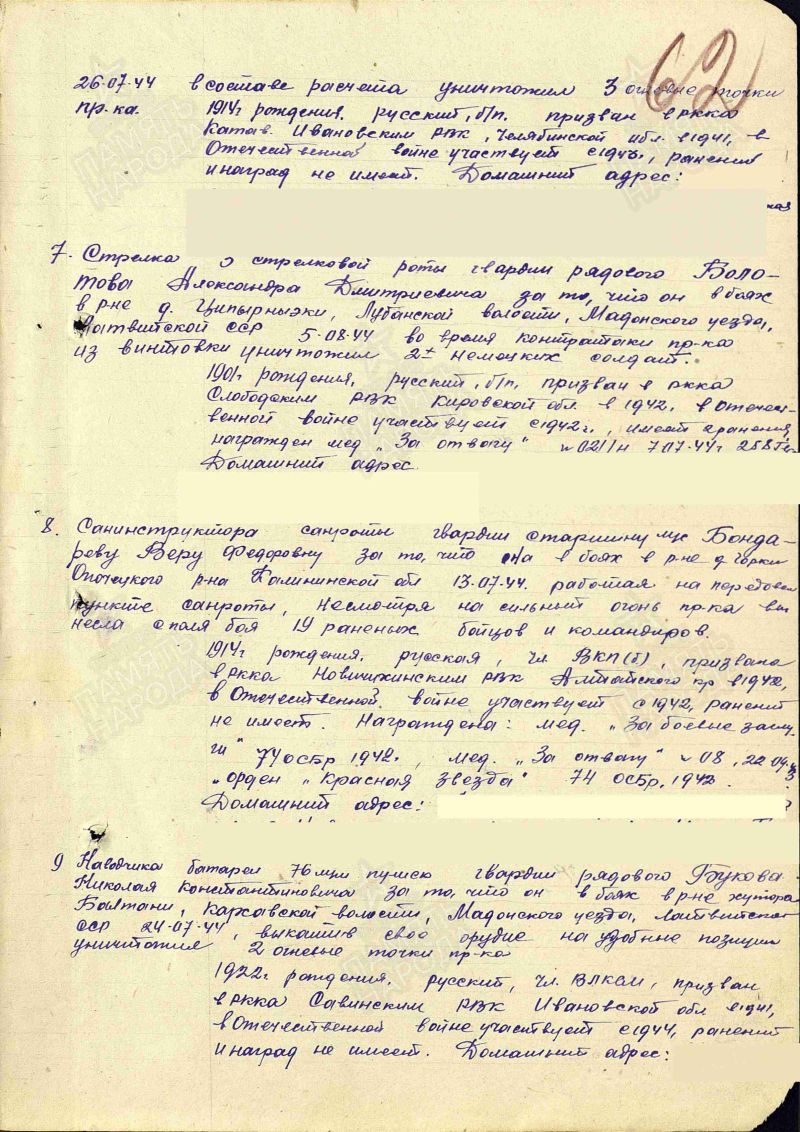 62
26.07.44 в составе расчета уничтожил 3 огневые точки
пр-ка. 1914г рождения, русский, б/п. призван в РККА
Катав. Ивановским РВК, Челябинской обл. в 1941, в
Отечественной войне участвует с 1943г, ранений
и наград не имеет. Домашний адрес:
7. Стрелка 3 стрелковой роты гвардии рядового Боло-
това Александра Дмитриевича за то, что он в боях
в р-не д. Ципырныэки, Лубанской волости, Мадонского уезда,
Латвийской ССР 5.08.44 во время контратаки пр-ка
из винтовки уничтожил 2х немецких солдат.
1901г рождения, русский, б/п, призван в РККА
Слободским РВК Кировской обл. в 1942. в Отечест-
венной войне участвует с 1942г., имеет ранения,
награжден мед „За отвагу" № 0211н 7.07.44г
Домашний адрес
8. Санинструктора санроты гвардии старшину м/с Бонда-
реву Веру Федоровну за то, что она в боях в р-не д. Горки
Опочецкого р-на Калининской обл 13.07.44. работая на передовом
пункте санроты, несмотря на сильный огонь пр-ка вы-
несла с поля боя 19 раненых бойцов и командиров.
1914г рождения, русская, чл ВКП(б), призвана
в РККА Новичихинским РВК Алтайского кр в 1942,
в Отечественной войне участвует с 1942, ранений
не имеет. Награждена: мед. „За боевые заслу-
ги" 74 ОСБР 1942г., мед. „За отвагу" № 08, 22.04.43
„орден „Красная звезда" 74 ОСБР, 1943.
Домашний адрес:
9 Наводчика батареи 76 м/м пушек гвардии рядового Букова
Николая Константиновича за то, что он в боях в р-не хутора
Балтани, Карзавской волости, Мадонского уезда, Латвийской
ССР 24.07.44, выкатив свое орудие на удобные позиции
уничтожил 2 огневые точки пр-ка
1922г рождения, русский, чл. ВЛКСМ, призван
в РККА Савинским РВК Ивановской обл в 1941,
в Отечественной войне участвует с 1944, ранений
и наград не имеет. Домашний адрес:
ПАМЯТЬ НАРОДА